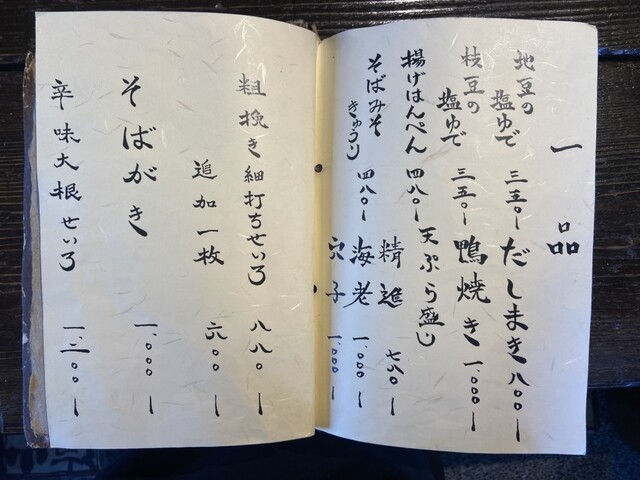 一品
地豆の塩ゆで 三五〇ー
だしまき 八〇〇ー
枝豆の塩ゆで 三五〇ー
鴨焼き 一、〇〇〇ー
揚げはんぺん 四八〇ー
天ぷら盛し
精進 七八〇ー
そばみそきゅうり 四八〇ー
海老 一、〇〇〇ー
穴子 一、〇〇〇ー
粗挽き細打ちせいろ 八八〇ー
追加一枚 六〇〇ー
そばがき 一、〇〇〇ー
辛味大根せいろ 一、三〇〇ー